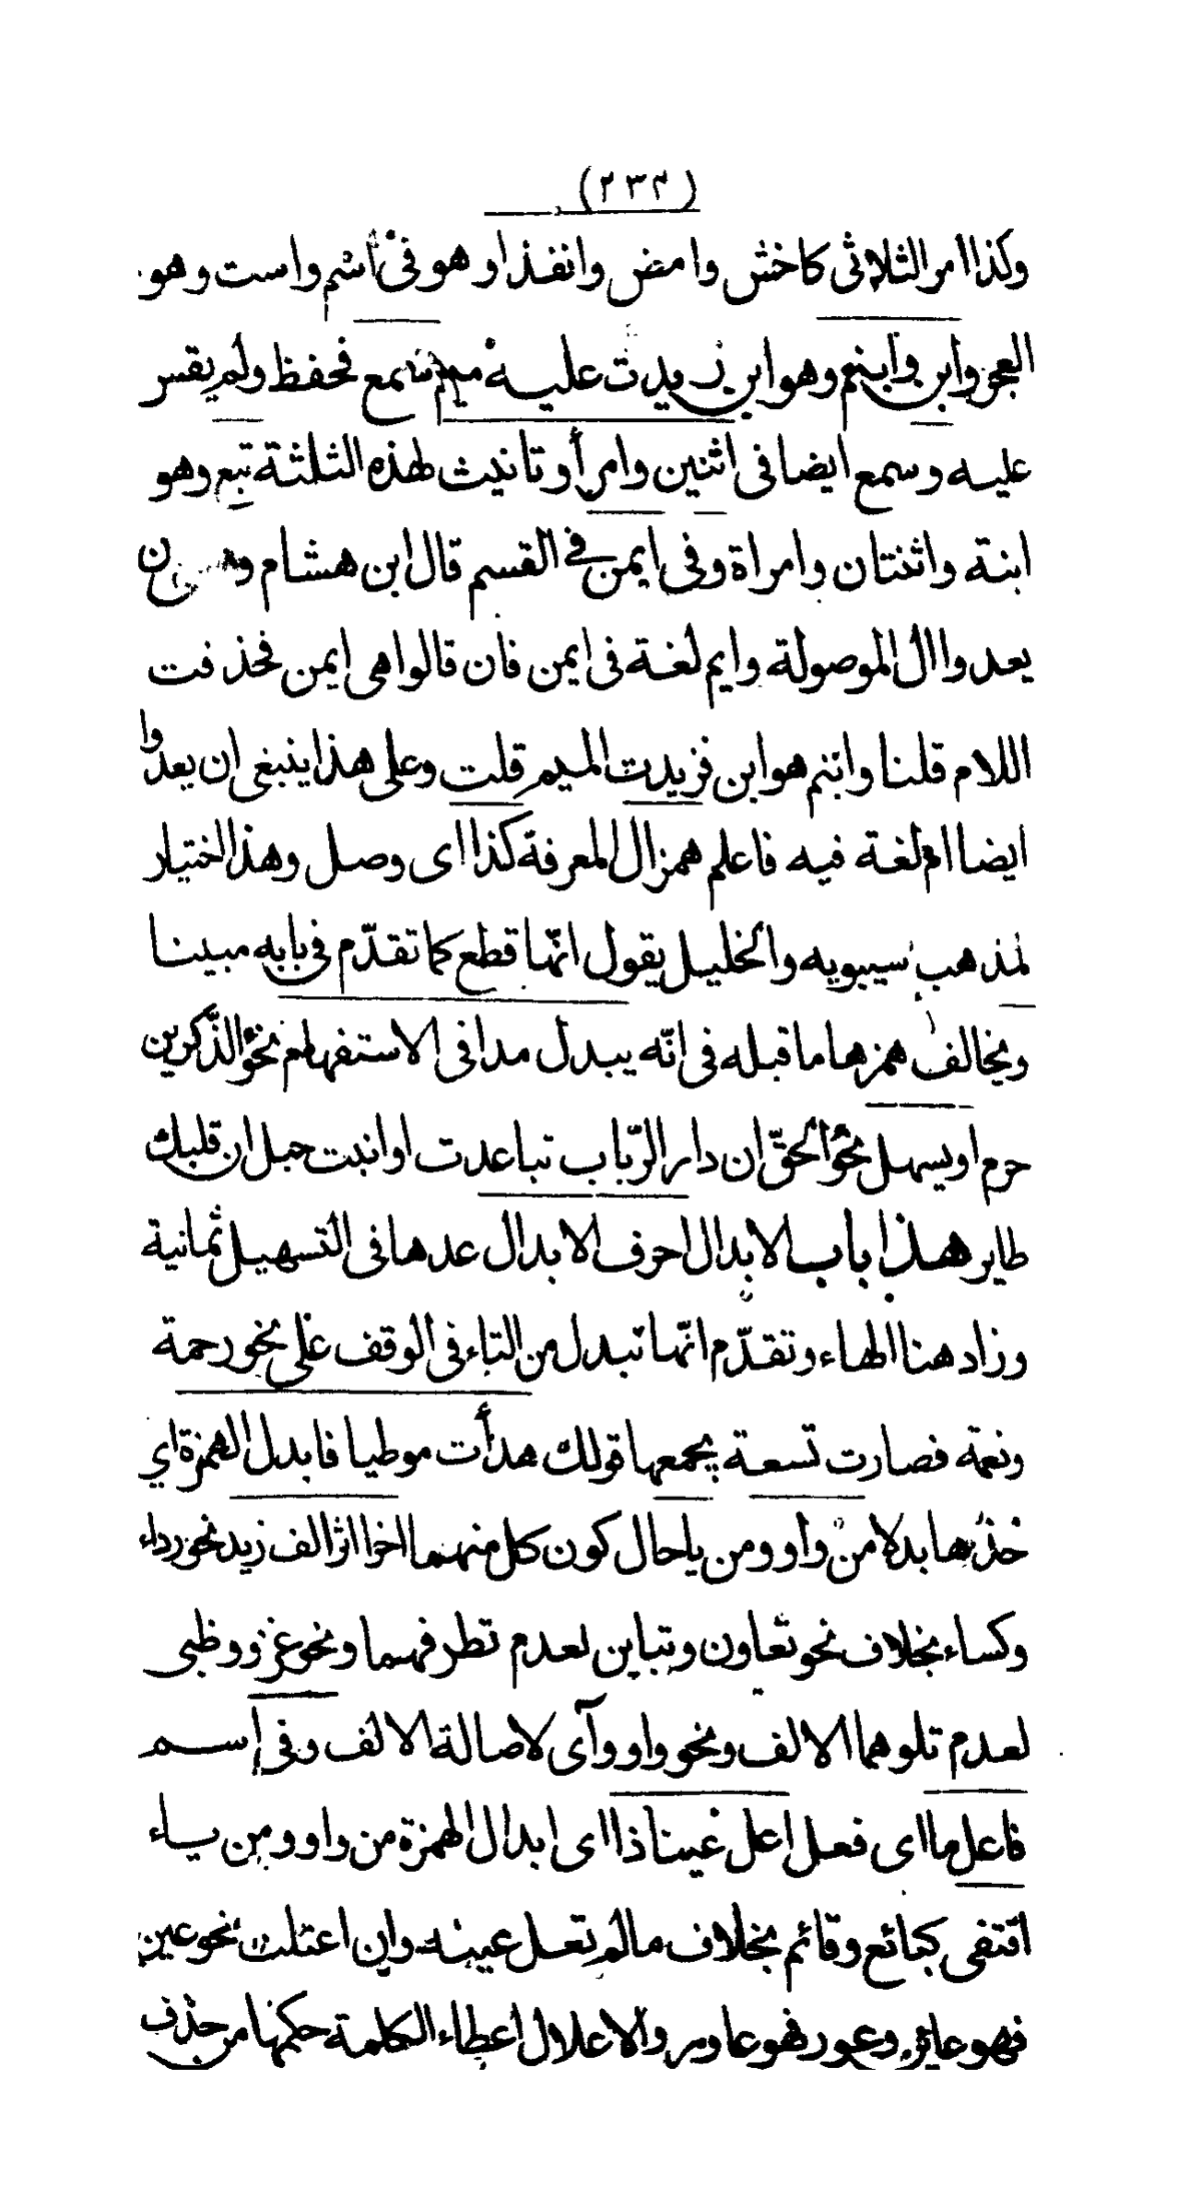 (٢٣٣)
وكذا امر الثلاثى كاخش وامض وانفذا وهو فى اسم واست وهو
العجز وابن وابنم وهو ابن زيدت عليه ميم سمع فحفظ ولم يقس
عليه وسمع ايضا فى اثنين وامرأ وتانيث لهذه الثلثة تبع وهو
ابنة واثنتان وامراة وفى ايمن في القسم قال ابن هشام ان
يعدوا ال الموصولة وايم لغة فى ايمن فان قالوا هى ايمن فحذفت
اللام قلنا وابنم هو ابن فزيدت الميم قلت وعلى هذا ينبغى ان يعدوا
ايضا ام لغة فيه فاعلم همز ال المعرفة كذا اى وصل وهذا اختيار
لمذهب سيبويه والخليل يقول انّها قطع كما تقدّم فى بابه مبينا
ويخالف همزها ما قبله فى انّه يبدل مدا فى الاستفهام نحو آلذّكرين
حرم او يسهل نحو أالحقّ ان دار الرّباب تباعدت او انبت حبل ان قلبك
طاير هذا باب الابدال احرف الابدال عدها فى التسهيل ثمانية
وزاد هنا الهاء وتقدّم انّها تبدل من التاء فى الوقف على نحو رحمة
ونعمة فصارت تسعة يجمعها قولك هدأت موطيا فابدل الهمزة اي
خذها بدلا من واو ومن يا حال كون كل منهما اخرا اثر الف زيد نحو رداء
وكساء بخلاف نحو تعاون وتباين لعدم تطرفهما ونحو غزو وظبى
لعدم تلوهما الالف ونحو واو وآى لاصالة الالف وفى إسم
فاعل ما اى فعل اعل عينا ذا اى ابدال الهمزة من واو ومن ياء
اقتفى كبائع وقائم بخلاف ما لم تعل عينه وان اعتلت نحو عين
فهو عاين وعور فهو عاور والاعلال اعطاء الكلمة حكمها من حذف